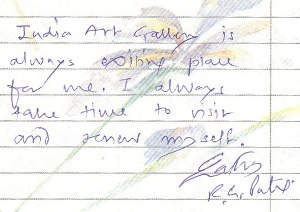 India Art Gallery is
always exiting place
for me. I always
take time to visit
and renew myself.